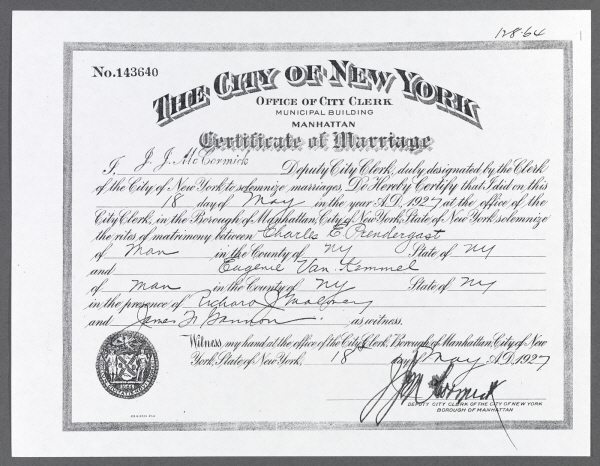 128-64
No.143640
THE CITY OF NEW YORK
OFFICE OF CITY CLERK
MUNICIPAL BUILDING
MANHATTAN
Certificate of Marriage
I, J. J. McCormick Deputy City Clerk, duly designated by the Clerk
of the City of New York to solemnize marriages, Do Hereby Certify that I did on this
18 day of May in the year A.D. 1927 at the office of the
City Clerk, in the Borough of Manhattan, City of New York, State of New York solemnize
the rites of matrimony between Charles E. Prendergast
of Man in the County of NY State of NY
and Eugenie Van Kemmel
of Man in the County of NY State of NY
in the presence of Richard J.
and James F. Gannon as witness.
Witness, my hand at the office of the City Clerk, Borough of Manhattan, City of New
York, State of New York, 18 day of May A.D. 1927
J J McCormick
DEPUTY CITY CLERK OF THE CITY OF NEW YORK
BOROUGH OF MANHATTAN